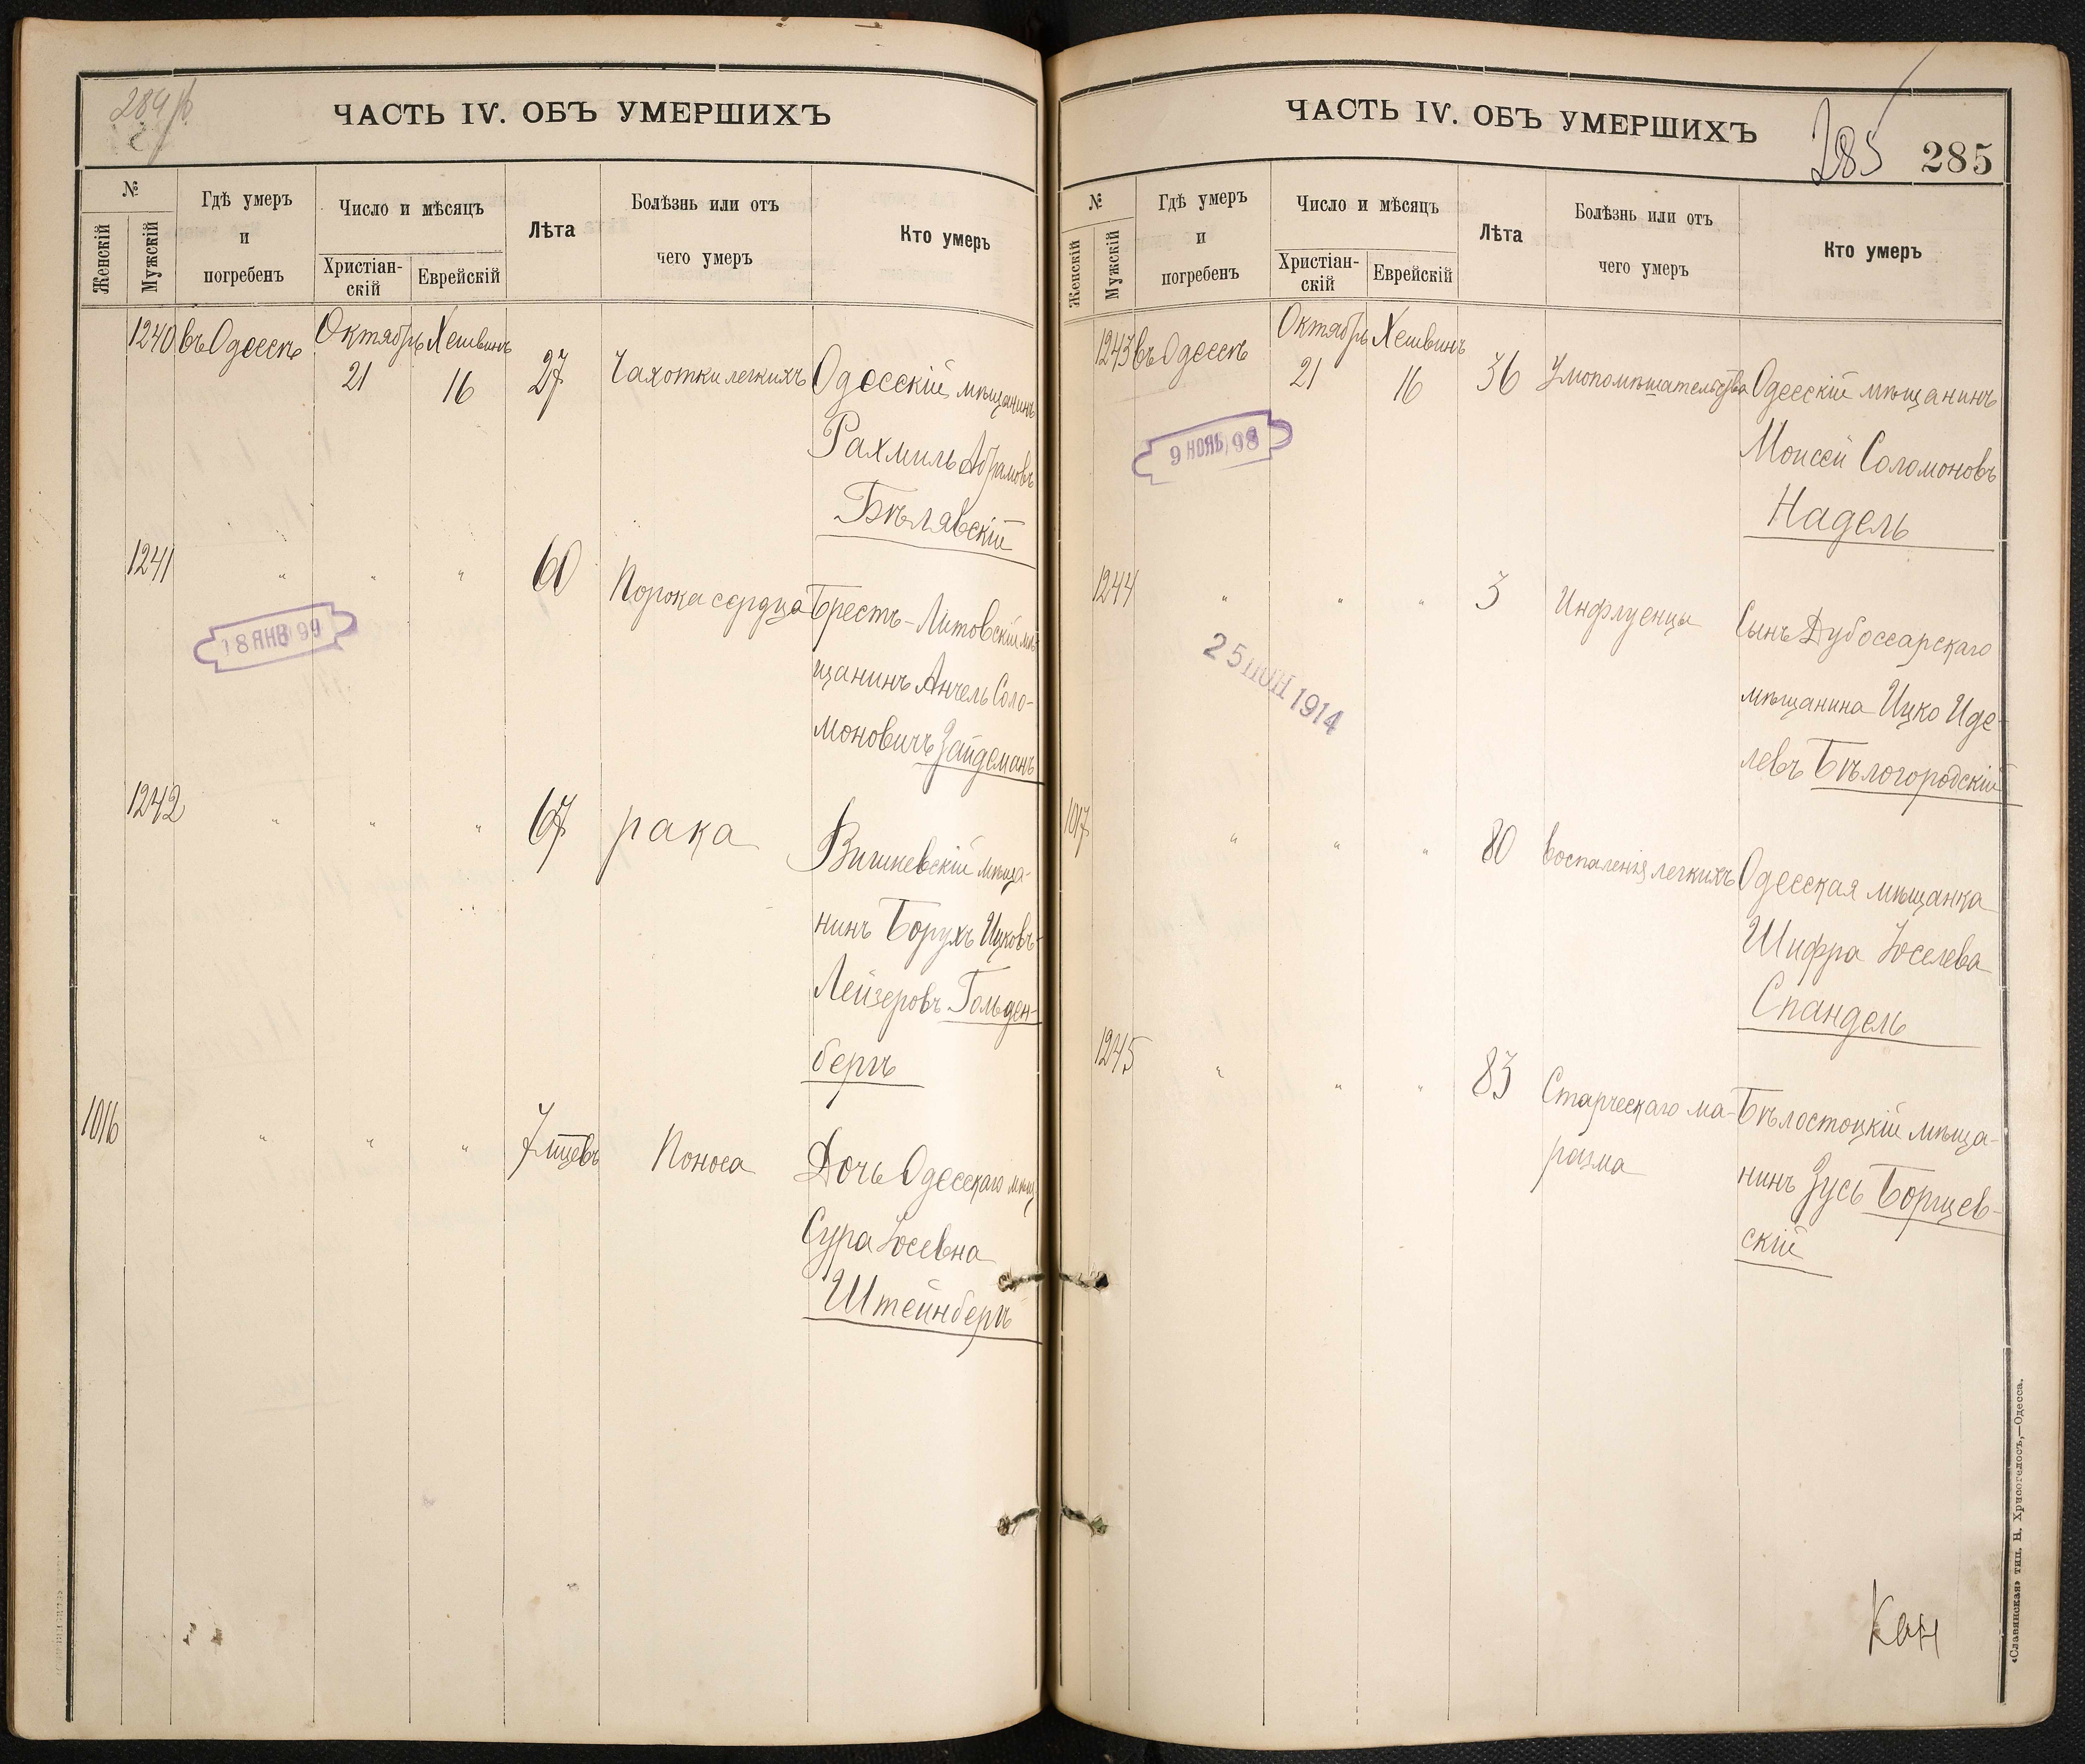 284 об
ЧАСТЬ IV. ОБЪ УМЕРШИХЪ
№
Женскій
Мужскій
Гдѣ умеръ
и
погребенъ
Число и мѣсяцъ
Христіан-
скій
Еврейскій
Лѣта
Болѣзнь или отъ
чего умеръ
Кто умеръ
1240 въ Одессѣ Октябрь Хешвинъ
21 16 27 Чахотки легкихъ Одесскій мѣщанинъ
Рахмиль Абрамовъ
Бѣлявскій
1241 " " " 60 Порока сердца Брестъ-Литовскій мѣ-
щанинъ Анчель Соло-
моновичъ Зайдеманъ
18 ЯНВ 99
1242 " " " 67 рака Вишневскій мѣща-
нинъ Борухъ Ицковъ-
Лейзеровъ Гольден-
бергъ
1016 " " " 7 мцевъ Поноса Дочь Одесскаго мѣщ
Сура Іосевна
Штейнбергъ
ЧАСТЬ IV. ОБЪ УМЕРШИХЪ
285
285
№
Женскій
Мужскій
Гдѣ умеръ
и
погребенъ
Число и мѣсяцъ
Христіан-
скій
Еврейскій
Лѣта
Болѣзнь или отъ
чего умеръ
Кто умеръ
1243 въ Одессѣ Октябрь Хешвинъ
21 16 36 Умопомѣшательства Одесскій мѣщанинъ
Моисей Соломоновъ
Надель
9 НОЯБ 98
1244 " " " 3 Инфлуенцы Сынъ Дубоссарскаго
мѣщанина Ицко Иде-
левъ Бѣлогородскій
25 ІЮН 1914
1017 " " " 80 воспаленія легкихъ Одесская мѣщанка
Шифра Іоселева
Спандель
1245 " " " 83 Старческаго ма- Бѣлостоцкій мѣща-
разма нинъ Зусь Борщев-
скій
«Славянская» тип. Н. Хрисогелосъ,—Одесса.